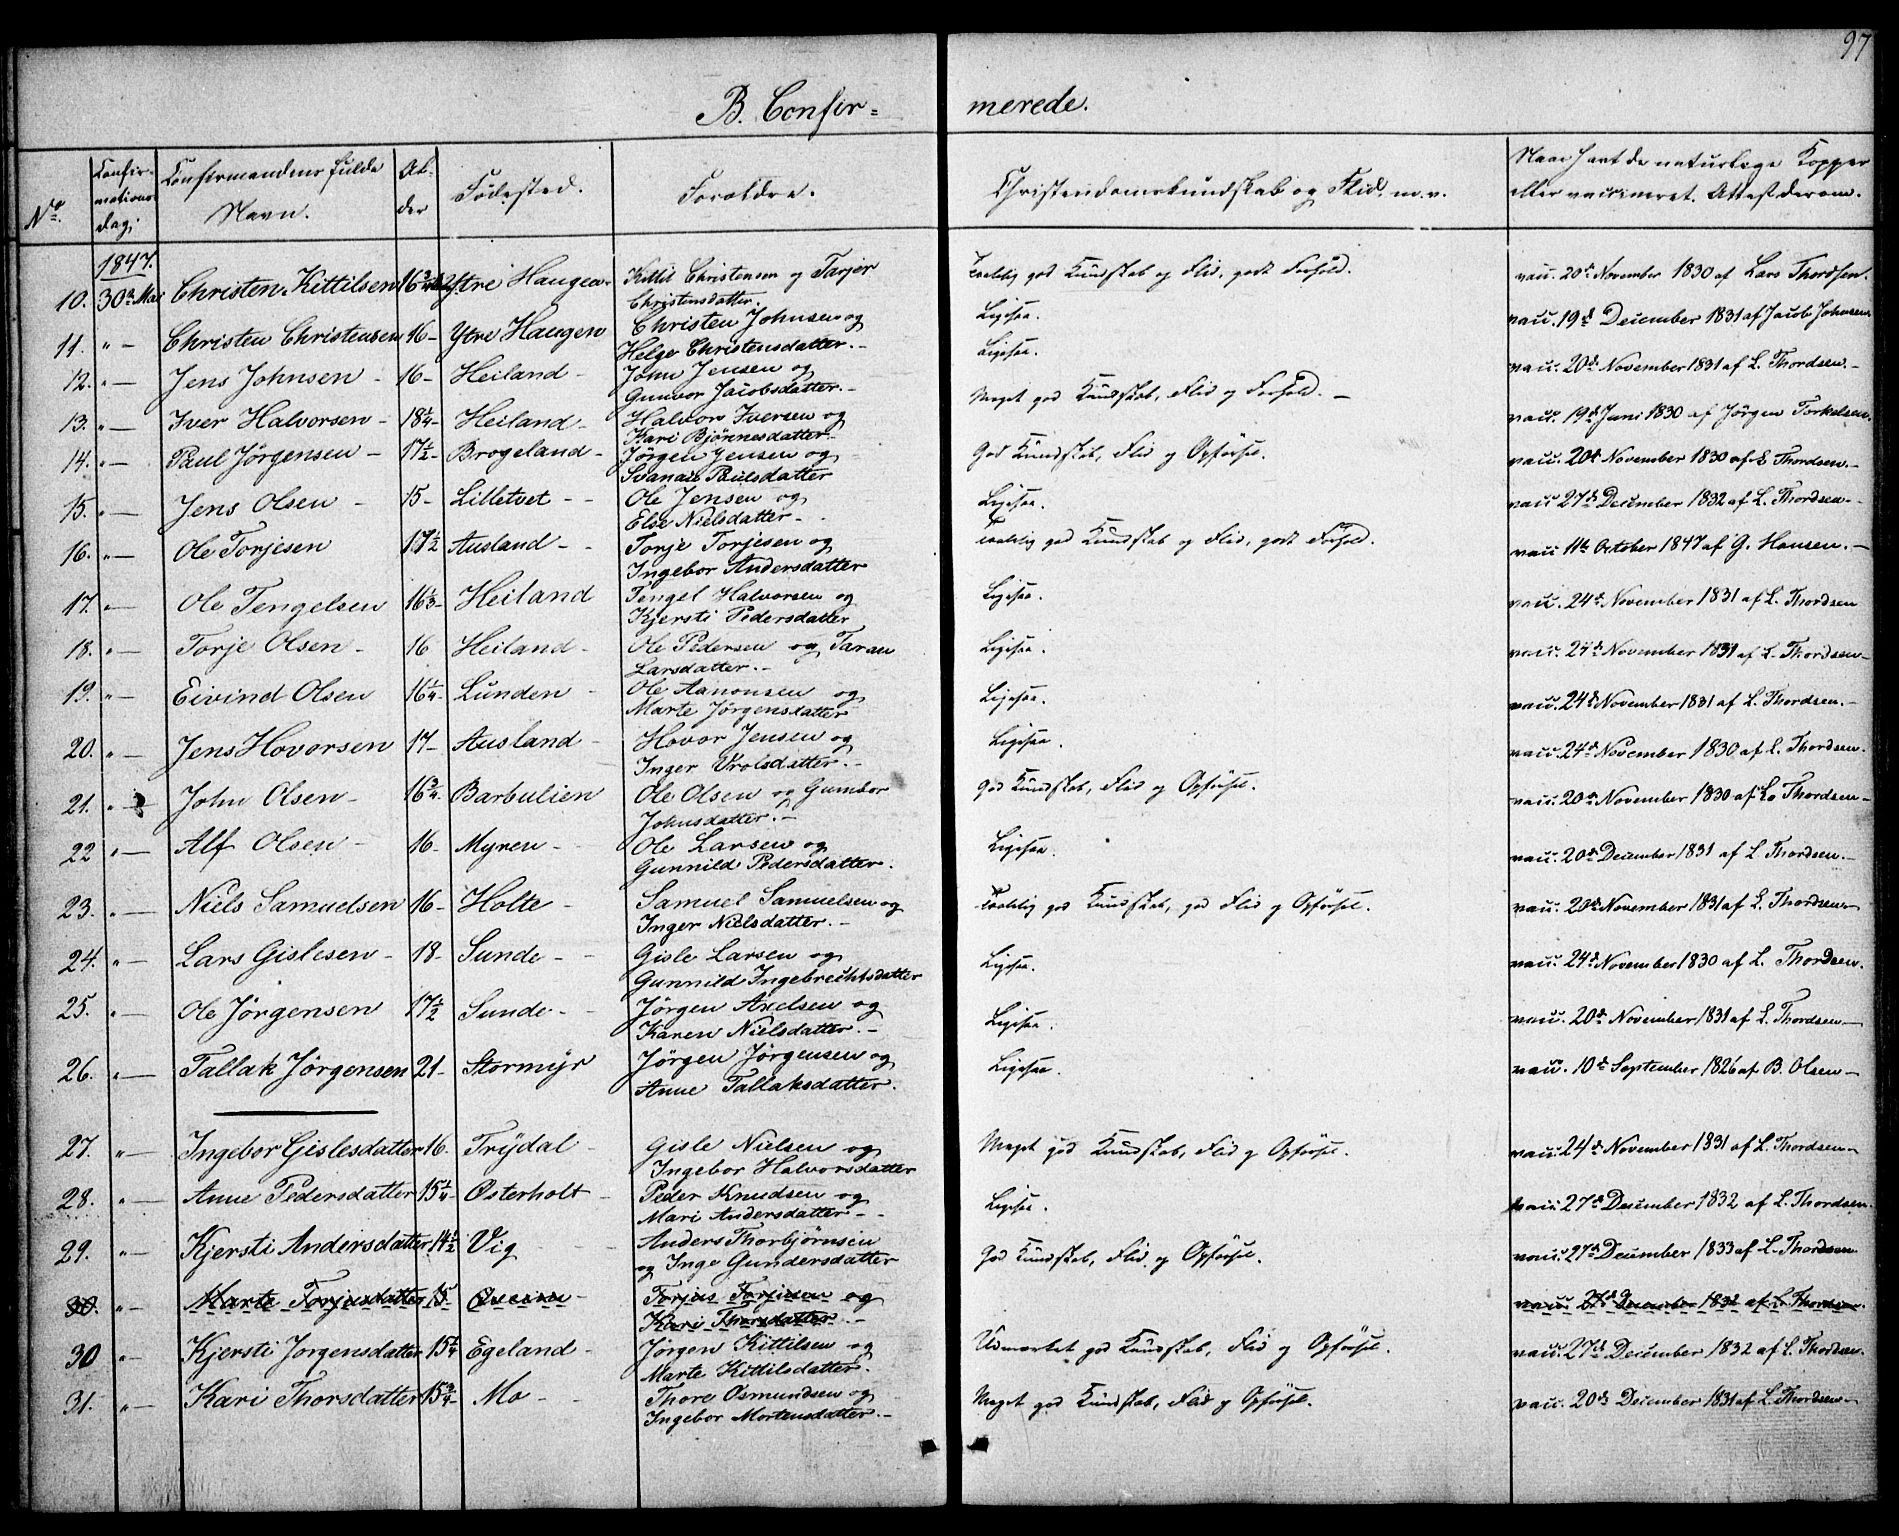 97
B. Confir= merede.
No. Confirmations Dag. Confirmandens fulde Navn. Alder Fødested. Forældre. Christendomskundskab og Flid, m.v. Naar havt de naturlige Kopper eller vaccineret. Attest derom.
1847.
10. 30te Mai Christen Kittilsen 16 3/4 Ytre Haugen Kittil Christensen og Tarjer Christensdatter. Temmelig god Kundskab og Flid, godt Forhold. vacc. 20de November 1830 af Lars Thordsen.
11. " — Christen Christensen 16 - Ytre Haugen Christen Johnsen og Helge Christensdatter. - Ligesaa. vacc. 19d December 1831 af Jacob Johnsen.
12. " — Jens Johnsen - 16 - Heiland - John Jensen og Gunvor Jacobsdatter. - Ligesaa. vacc. 20de November 1831 af L. Thordsen. -
13. " — Iver Halvorsen - 18 1/4 - Heiland - Halvor Iversen og Kari Bjönnesdatter. - Meget god Kundskab, Flid og Forhold. - vacc. 19d Juni 1830 af Jörgen Torkelsen.
14. " — Paul Jörgensen - 17 1/2 - Brogeland - Jörgen Jensen og Svanau Paulsdatter God Kundskab, Flid og Opförsel. vacc. 20de November 1830 af L. Thordsen. -
15. " — Jens Olsen - 15 - Lilletvet - - Ole Jensen og Else Nielsdatter - Ligesaa. vacc. 27de December 1832 af L. Thordsen -
16. " — Ole Torjesen 17 1/2 Ausland - - Torje Torjesen og Ingebor Andersdatter Taalelig god Kundskab og Flid, godt Forhold. vacc 11te October 1847 af G. Hansen. -
17. " — Ole Tengelsen 16 1/3 - Heiland Tengel Halvorsen og Kjersti Pedersdatter Ligesaa. vacc. 24de November 1831 af L. Thordsen
18. " — Torje Olsen - 16 Heiland - Ole Pedersen og Taran Larsdatter. - Ligesaa. vacc. 24de November 1831 af L. Thordsen -
19. " — Eivind Olsen 16 1/4 - Lunden - Ole Aanonsen og Marte Jörgensdatter Ligesaa. vacc. 24de November 1831 af L. Thordsen. -
20. " — Jens Hovorsen 17 - Ausland - Hovor Jensen og Inger Vrolsdatter. - Ligesaa. vacc. 24de November 1830 af L. Thordsen.
21. " — John Olsen - 16 3/4 Barbulien Ole Olsen og Gumbor Johnsdatter. - God Kundskab, Flid og Opförsel. vacc. 20de November 1830 af L. Thordsen -
22 " — Alf Olsen - 16 - Myren - - Ole Larsen og Gunnild Pedersdatter. Ligesaa. vacc. 20de December 1831 af L. Thordsen. -
23. " — Niels Samuelsen 16 - Holte - Samuel Samuelsen og Inger Nielsdatter. - Taalelig god Kundskab, god Flid og Opförsel. vacc. 20de November 1831 af L. Thordsen. -
24. " — Lars Gislesen - 18 - Sunde - - Gisle Larsen og Gunnild Ingebrechtsdatter Ligesaa. vacc. 24de November 1830 af L. Thordsen.
25. " — Ole Jörgensen 17 1/2 Sunde - - Jörgen Axelsen og Karen Nielsdatter. - Ligesaa. vacc. 20de November 1831 af L. Thordsen -
26. " — Tallak Jörgensen 21 - Stormÿr Jörgen Jörgensen og Anne Tallaksdatter. Ligesaa. vacc. 10de September 1826 af B. Olsen -
27. " — Ingebor Gislesdatter 16. Trÿdal - Gisle Nielsen og Ingebor Halvorsdatter Meget god Kundskab, Flid og Opförsel. vacc. 24de November 1831 af L. Thordsen -
28. " — Anne Pedersdatter 15 1/4 - Osterholt - Peder Knudsen og Mari Andersdatter - - Ligesaa. vacc. 27de December 1832 af L. Thordsen.
29. " — Kjersti Andersdatter 14 1/2 Vig - Anders Thorbjörnsen og Inge Gundersdatter God Kundskab, Flid og Opförsel. vacc. 27de December 1833 af L. Thordsen
30. " — Marte Torjusdatter 15 Torjus Torjusen og Kari Thorsdatter. - vacc. 27de December 1832 af L. Thordsen.
30 " — Kjersti Jörgensdatter 15 1/4 Egeland - Jörgen Kittilsen og Marte Kittilsdatter. - Udmærket god Kundskab, Flid og Opförsel. vacc. 27de December 1832 af L. Thordsen.
31. " — Kari Thorsdatter 15 3/4 - Mo - Thore Osmundsen og Ingebor Mortensdatter. - Meget god Kundskab, Flid og Opförsel. vacc. 20de December 1831 af L. Thordsen -